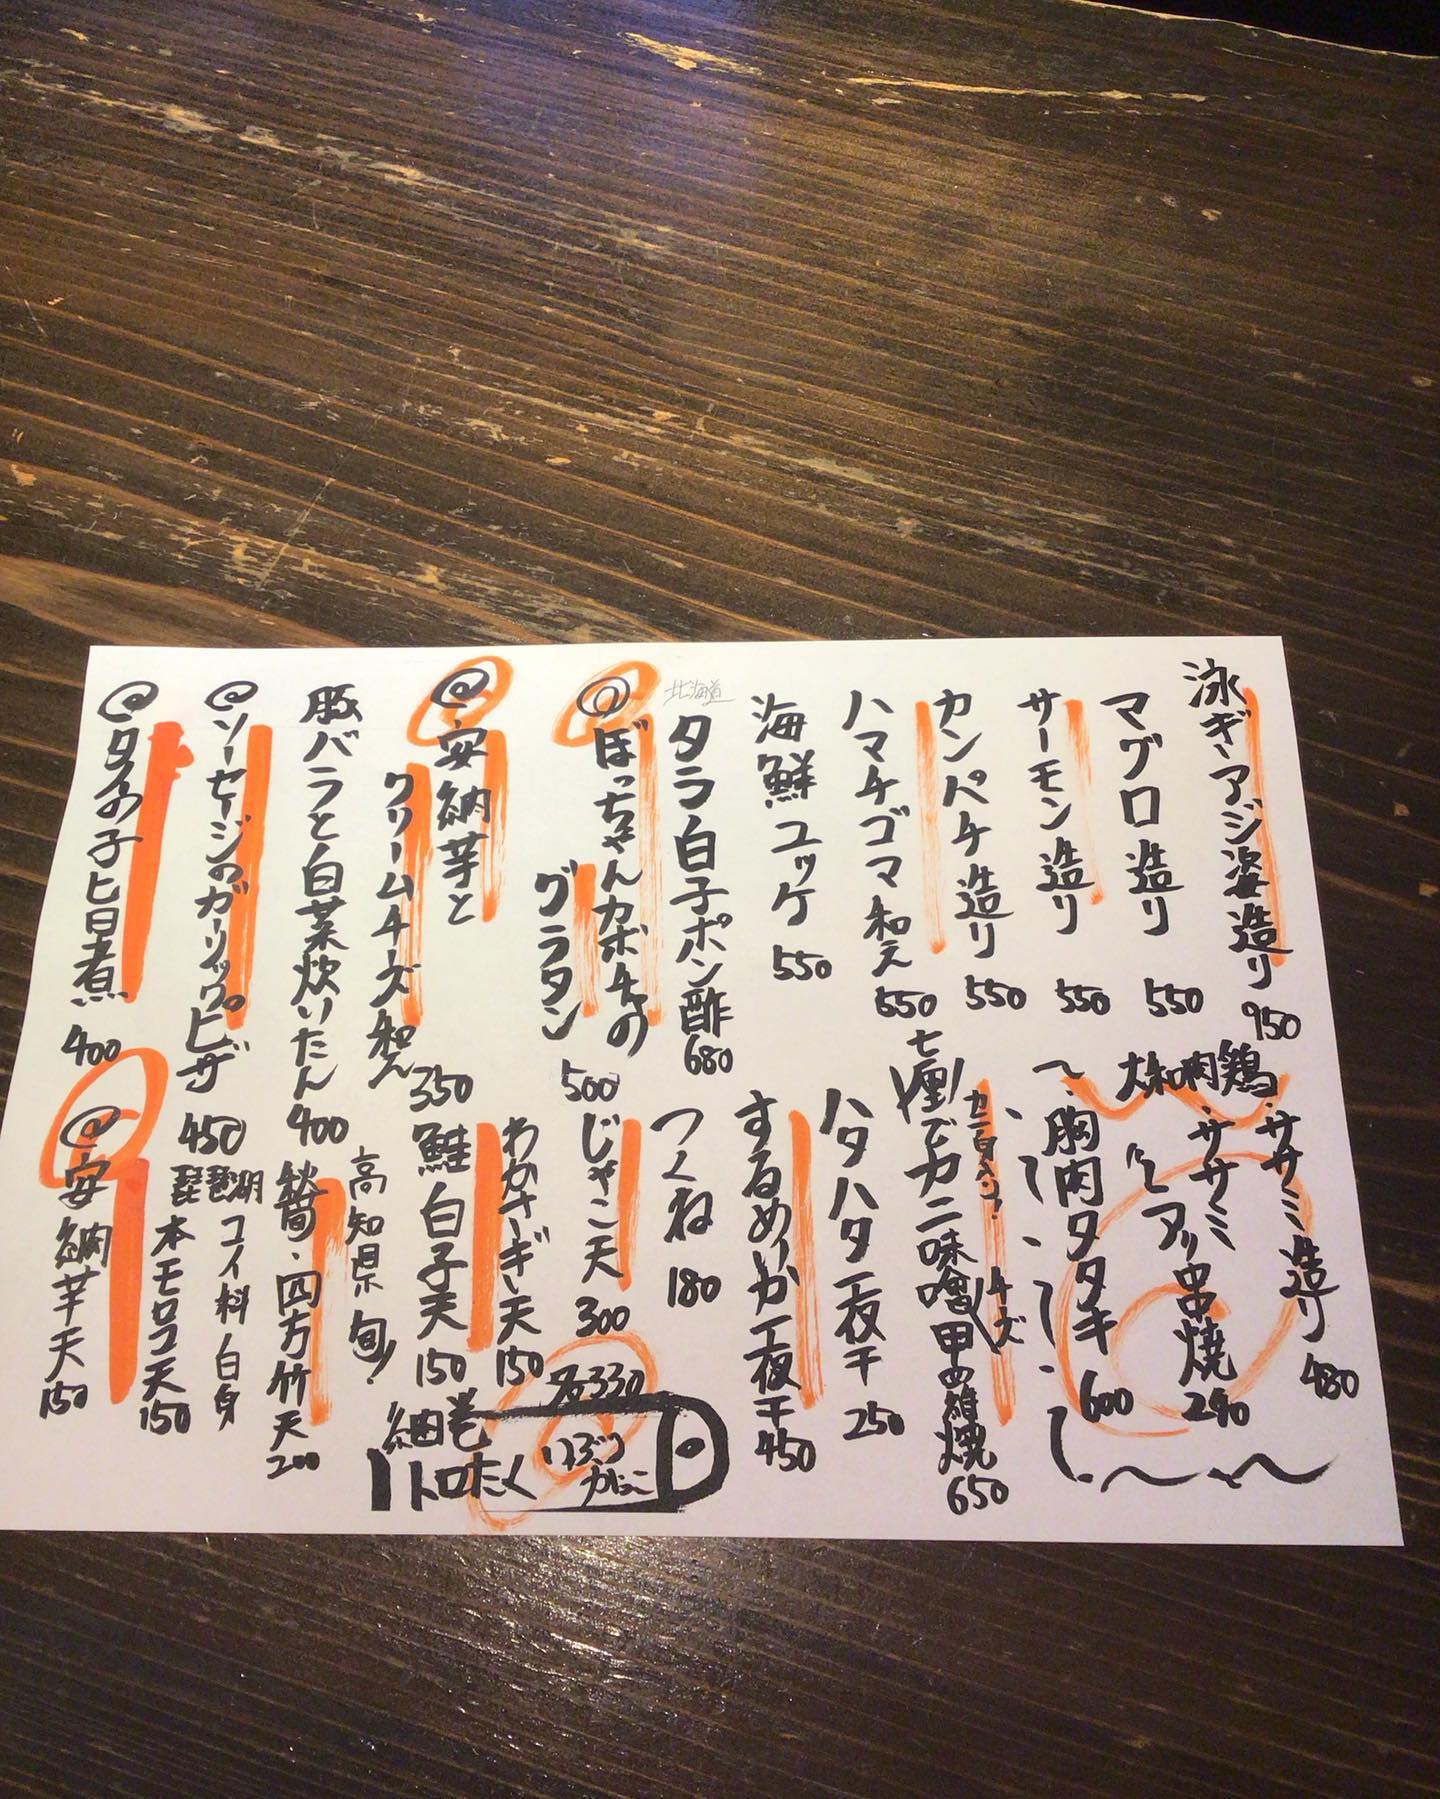 泳ぎアジ姿造り 950
マグロ造り 550
サーモン造り 550
カンパチ造り 550
ハマチゴマ和え 550
海鮮ユッケ 550
北海道
タラ白子ポン酢 680
ぼっちゃんカボチャの
グラタン 500
安納芋と
クリームチーズ和え 350
豚バラと白菜炊いたん 400
ソーセージのガーリックピザ 450
タイの子旨煮 400
大和肉鶏
ササミ造り 480
ササミ
串焼 290
胸肉タタキ 600
カニ身入り!
チーズ
七厘でカニ味噌甲羅焼 650
ハタハタ一夜干 250
するめいか一夜干 450
つくね 180
じゃこ天 300
わかさぎ天 150
鮭白子天 150
細巻
トロたく
いぶり
がっこ
330
高知県 旬!
四方竹天 200
琵琶湖 コイ科 白身
本モロコ天 150
安納芋天 150